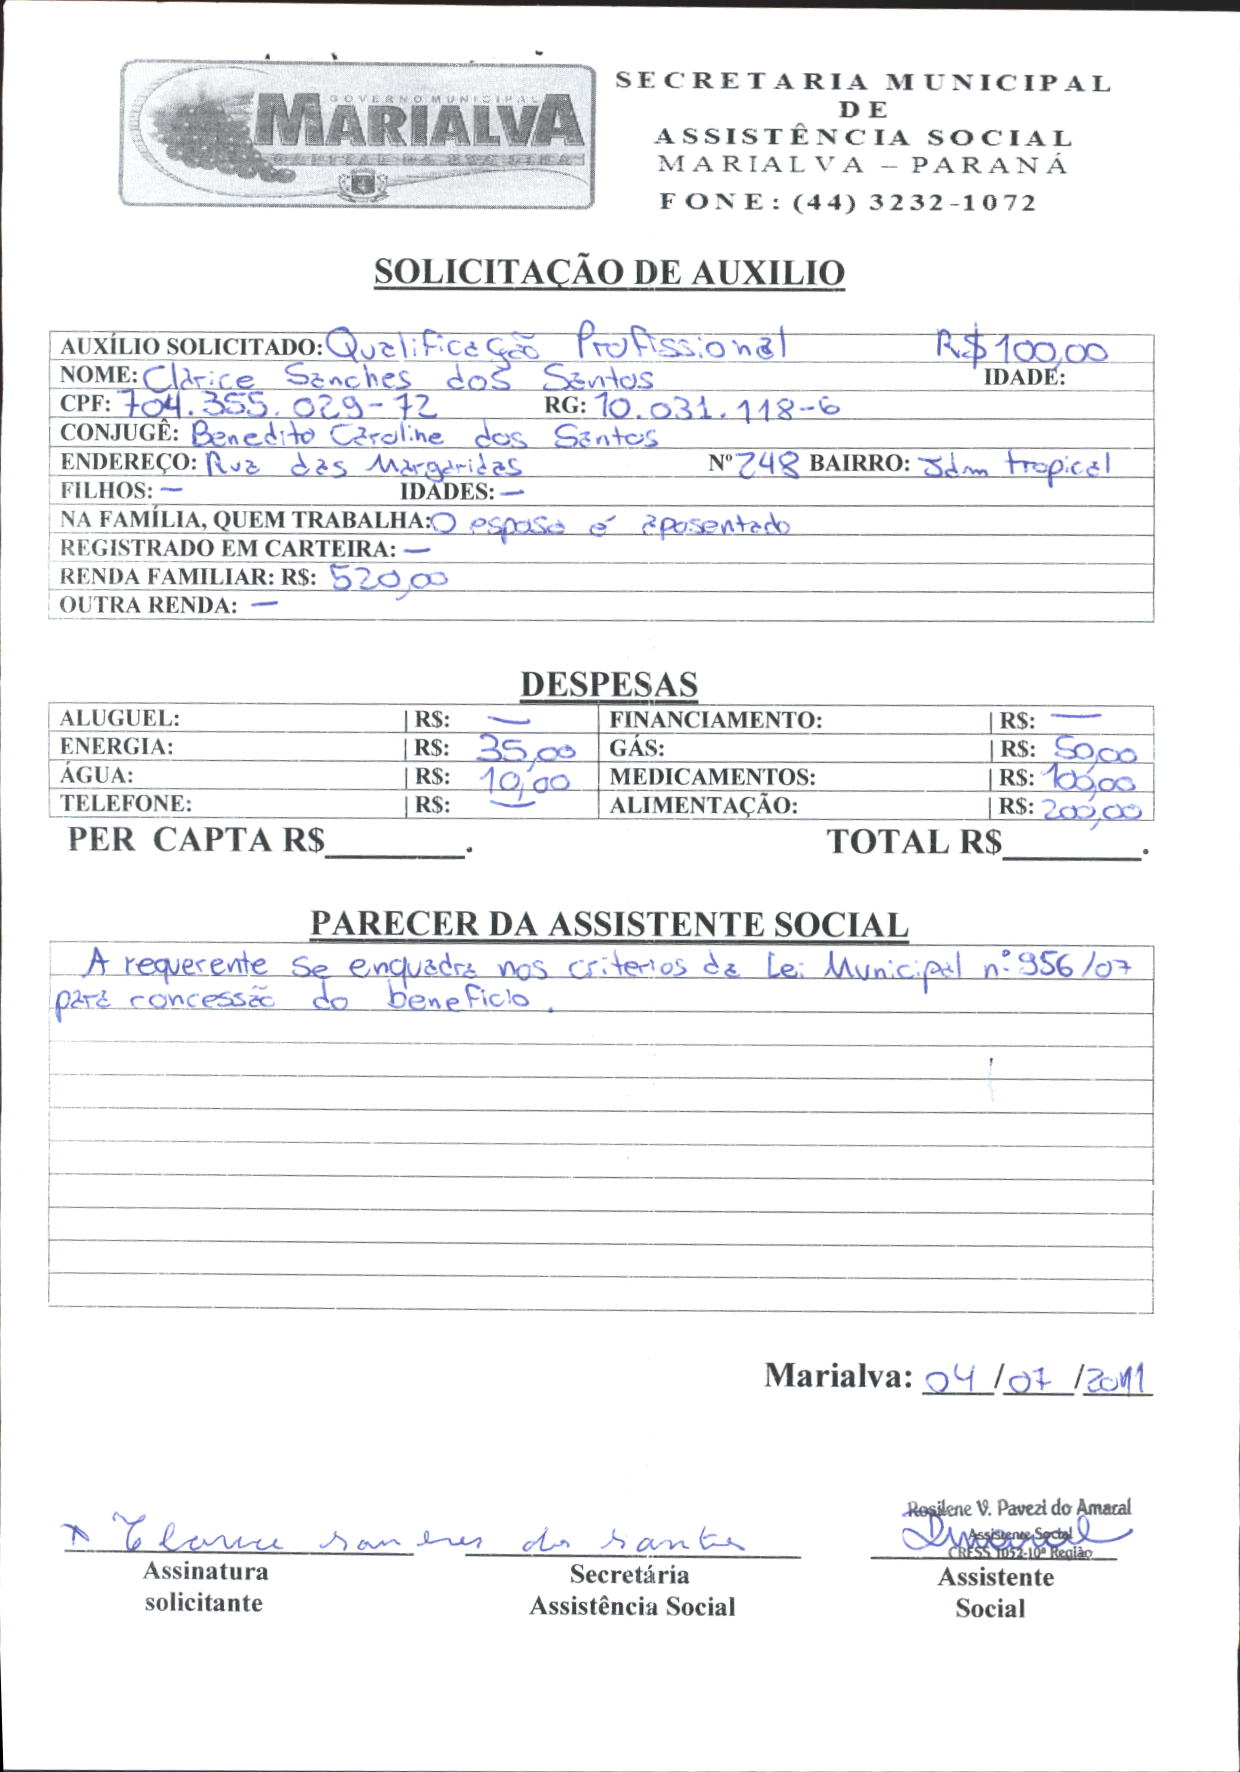 GOVERNO MUNICIPAL
MARIALVA
SECRETARIA MUNICIPAL
DE
ASSISTÊNCIA SOCIAL
MARIALVA – PARANÁ
FONE: (44) 3232-1072
SOLICITAÇÃO DE AUXILIO
AUXÍLIO SOLICITADO: Qualificação Profissional R$ 100,00
NOME: Clarice Sanches dos Santos IDADE:
CPF: 704.355.029-72 RG: 10.031.118-6
CONJUGÊ: Benedito Caroline dos Santos
ENDEREÇO: Rua das Margaridas Nº 248 BAIRRO: Jdm tropical
FILHOS: — IDADES: —
NA FAMÍLIA, QUEM TRABALHA: O esposo é aposentado
REGISTRADO EM CARTEIRA: —
RENDA FAMILIAR: R$: 520,00
OUTRA RENDA: —
DESPESAS
ALUGUEL: | R$: — FINANCIAMENTO: | R$: —
ENERGIA: | R$: 35,00 GÁS: | R$: 50,00
ÁGUA: | R$: 10,00 MEDICAMENTOS: | R$: 100,00
TELEFONE: | R$: — ALIMENTAÇÃO: | R$: 200,00
PER CAPTA R$________. TOTAL R$________.
PARECER DA ASSISTENTE SOCIAL
A requerente se enquadra nos criterios da Lei Municipal nº 956/07
para concessão do beneficio.
Marialva: 04/07/2011
Rosilene V. Pavezi do Amaral
Assistente Social
CRESS 1052-10ª Região
Clarice sanches do santos
Assinatura Secretária Assistente
solicitante Assistência Social Social